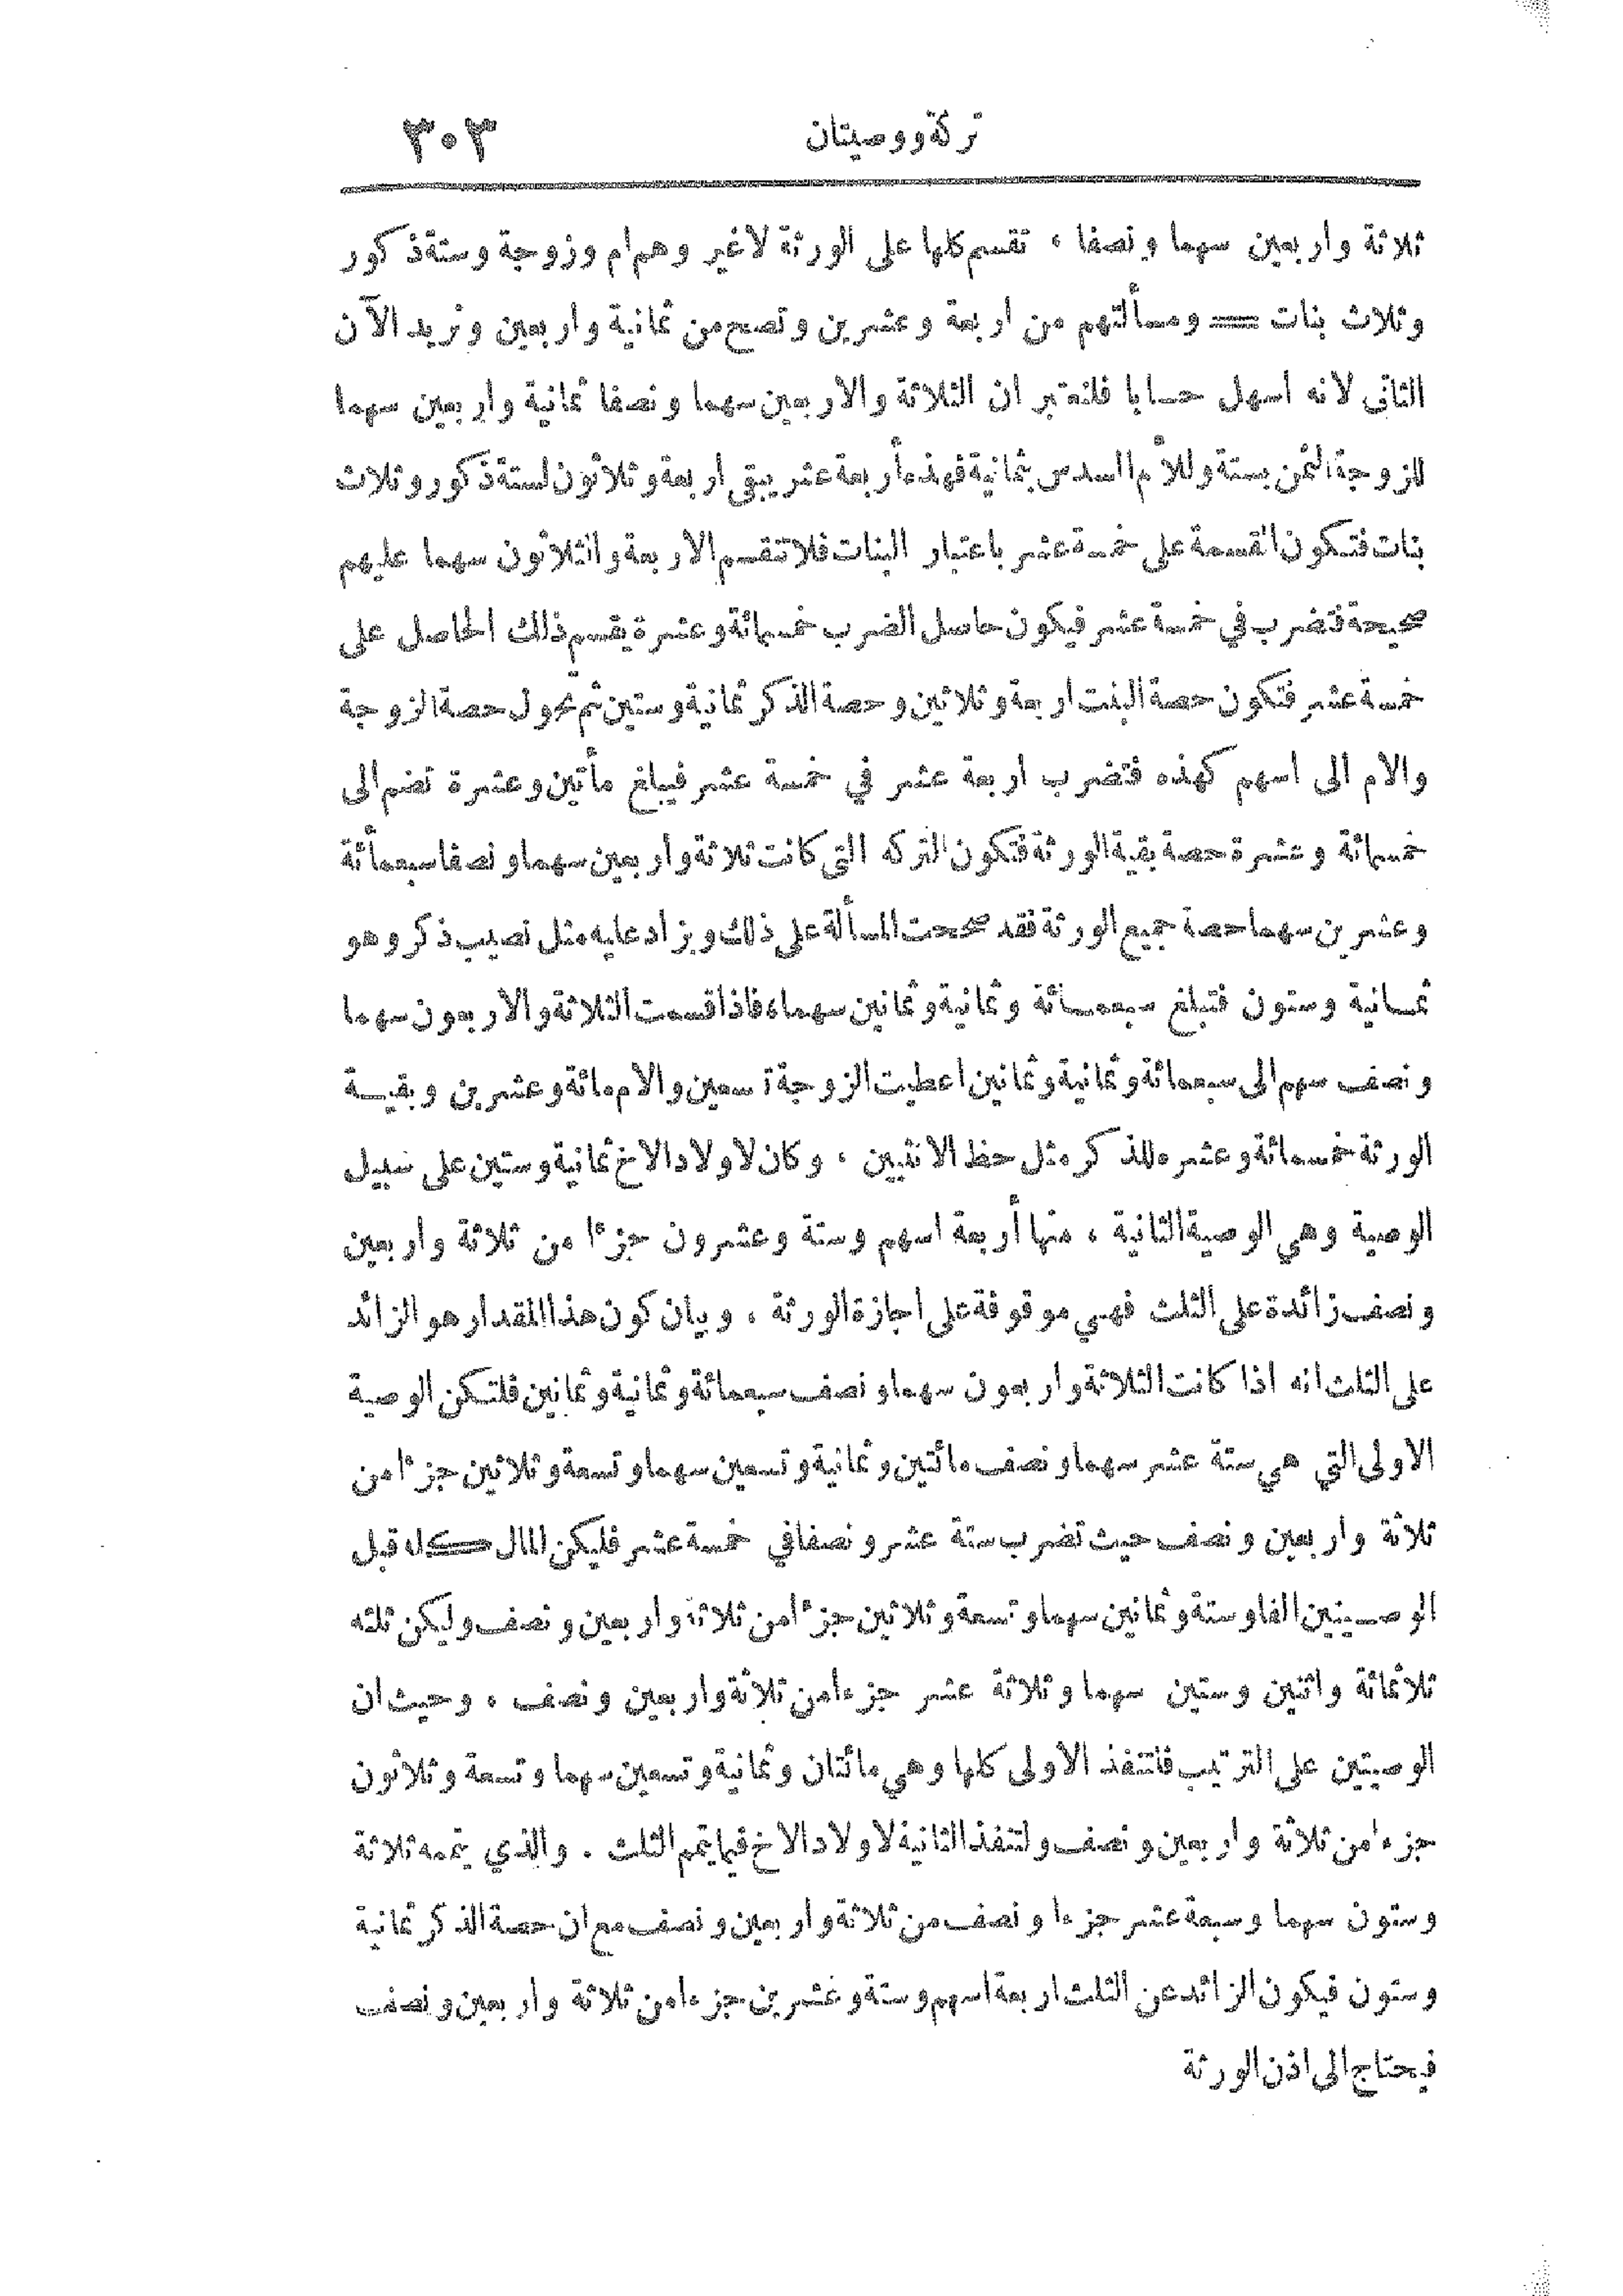 تركة ووصيتان ٣٠٣
ثلاثة واربعين سهما ونصفا ، تقسم كلها على الورثة لاغير وهم ام وزوجة وستة ذكور
وثلاث بنات = ومسألتهم من اربعة وعشرين وتصح من ثمانية واربعين ونريد الآن
الثاني لانه اسهل حسابا فلنعتبر ان الثلاثة والاربعين سهما ونصفا ثمانية واربعين سهما
للزوجة الثمن بستة وللأم السدس بثمانية فهذه أربعة عشر يبقى اربعة وثلاثون لستة ذكور وثلاث
بنات فتكون القسمة على خمسة عشر باعتبار البنات فلا تنقسم الاربعة والثلاثون سهما عليهم
صحيحة فتضرب في خمسة عشر فيكون حاسل الضرب خمسمائة وعشرة يقسم ذلك الحاصل على
خمسة عشر فتكون حصة البنت اربعة وثلاثين وحصة الذكر ثمانية وستين ثم تحول حصة الزوجة
والام الى اسهم كهذه فتضرب اربعة عشر في خمسة عشر فيبلغ مأتين وعشرة تضم الى
خمسمائة وعشرة حصة بقية الورثة فتكون التركه التي كانت ثلاثة وأربعين سهما ونصفا سبعمأئة
وعشرين سهما حصة جميع الورثة فقد صححت المسألة على ذلك ويزاد عليه مثل نصيب ذكر وهو
ثمانية وستون فتبلغ سبعمأئة وثمانية وثمانين سهما، فاذا قسمت الثلاثة والاربعون سهما
ونصف سهم الى سبعمائة وثمانية وثمانين اعطيت الزوجة تسعين والام مائة وعشرين وبقية
الورثة خمسمائة وعشره للذكر مثل حظ الانثيين ، وكان لاولاد الاخ ثمانية وستين على سبيل
الوصية وهي الوصية الثانية ، منها أربعة اسهم وستة وعشرون جزءًا من ثلاثة واربعين
ونصف زائدة على الثلث فهي موقوفة على اجازة الورثة ، وبيان كون هذا المقدار هو الزائد
على الثلث انه اذا كانت الثلاثة واربعون سهما ونصف سبعمائة وثمانية وثمانين فلتكن الوصية
الاولى التي هي ستة عشر سهما ونصف مائتين وثمانية وتسعين سهما وتسعة وثلاثين جزءًا من
ثلاثة واربعين ونصف حيث تضرب ستة عشر ونصفا في خمسة عشر فليكن المال كله قبل
الوصيتين الفا وستة وثمانين سهما وتسعة وثلاثين جزءًا من ثلاثة واربعين ونصف وليكن ثلثه
ثلاثمائة واثنين وستين سهما وثلاثة عشر جزءا من ثلاثة واربعين ونصف ، وحيث ان
الوصيتين على الترتيب فلتنفذ الاولى كلها وهي مائتان وثمانية وتسعين سهما وتسعة وثلاثون
جزءا من ثلاثة واربعين ونصف ولتنفذ الثانية لاولاد الاخ فيما يتم الثلث . والذي يتمه ثلاثة
وستون سهما وسبعة عشر جزءا ونصف من ثلاثة واربعين ونصف مع ان حصة الذكر ثمانية
وستون فيكون الزائد عن الثلث اربعة اسهم وستة وعشرين جزءا من ثلاثة واربعين ونصف
فيحتاج الى اذن الورثة